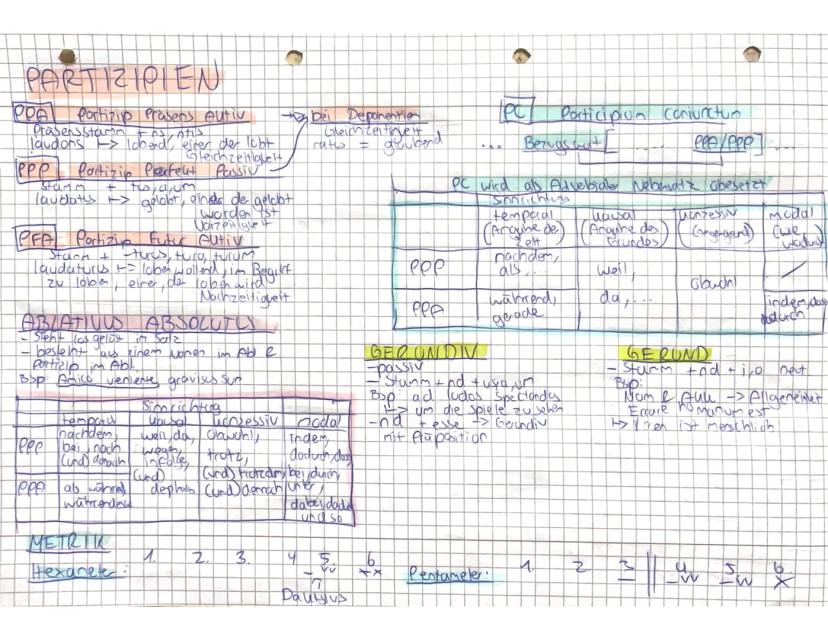 PARTIZIPIEN
PPA Partizip Präsens Aktiv
Präsensstamm + ns, ntis
laudans ↦ lobend, einer der lobt
Gleichzeitigkeit
PPP Partizip Perfekt Passiv
Stamm + tus, a, um
laudatus ↦ gelobt, einer der gelobt
worden ist
Vorzeitigkeit
PFA Partizip Futur Aktiv
Stamm + -turus, tura, turum
laudaturus ↦ loben wollend, im Begriff
zu loben, einer, der loben wird
Nachzeitigkeit
→ bei Deponentien
Gleichzeitigkeit
ratus = glaubend
PC Participium Coniunctum
... Bezugswort [ ... PPA/PPP] ...
PC wird als Adverbialer Nebensatz übesetzt
Sinnrichtung
temporal kausal konzessiv modal
(Angabe der Zeit) (Angabe des Grundes) (Gegengrund)
PPP nachdem, als... weil, da,... obwohl /
PPA während, gerade indem, dadurch
ABLATIVUS ABSOLUTUS
- steht losgelöst im Satz
- besteht aus einem Nomen im Abl &
Partizip im Abl.
Bsp: Amico veniente gravisus sum
Sinnrichtung
temporal kausal konzessiv modal
PPP nachdem, bei, nach (und) danach weil, da, wegen, infolge, (und) obwohl, trotz, (und) trotzdem indem, dadurch, das bei, durch, unter,
PPP als während währenddess dephalb (und) dennoch dabei, dadu und so
GERUNDIV
- passiv
- Stamm + nd + us, a, um
Bsp: ad ludos spectandos
↦ um die Spiele zu sehen
- nd + esse → Gerundiv
mit Präposition
GERUND
- Stamm + nd + i, o neut
Bsp:
Nom & Akk → Allgemeinheit
Errare humanum est
↦ Irren ist menschlich
METRIK
Hexameter: 1. 2. 3. 4 5. 6
Daktylus
Pentameter: 1. 2. 3 || 4. 5 6.